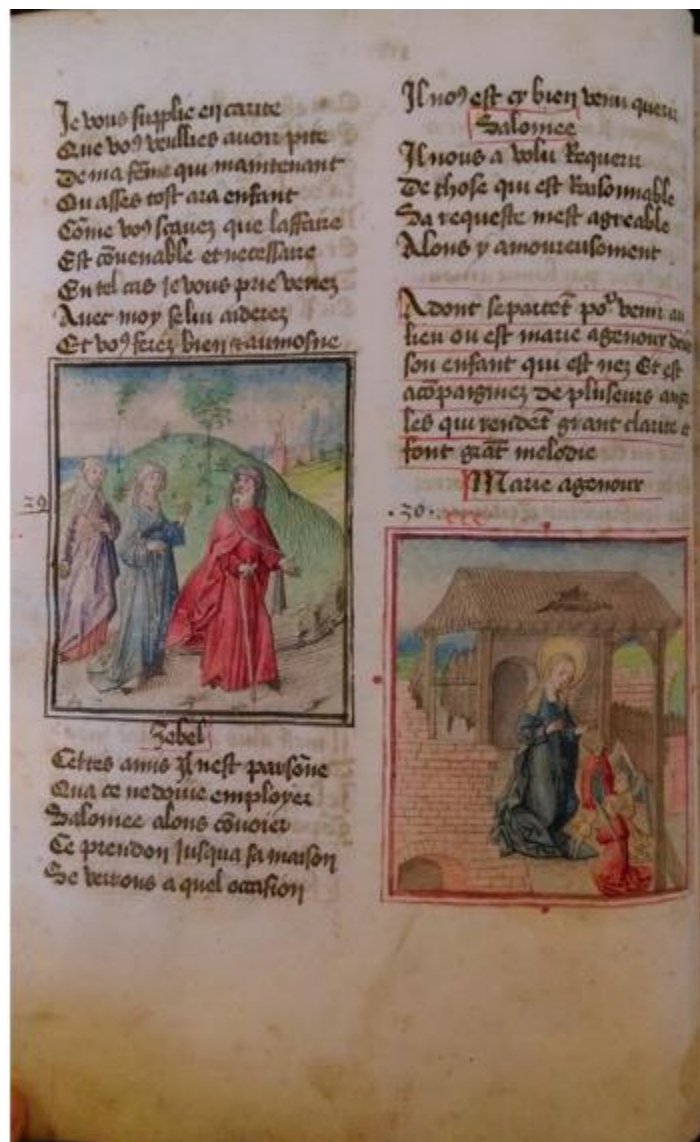 Je vous supplie en carite
Que voꝰ veullies auoir pite
De ma fēme qui maintenant
Ou asses tost ara enfant
Cōme voꝰ scauez que laffaire
Est cōuenable et necessaire
En tel cas Je vous prie venez
Auec moy se lui aiderez
Et voꝰ ferez bien & aumosne
29
Zebel
Certes amis Il nest parsōne
Qua ce ne doiue employer
Salomee alons cōuoier
Ce preudon Jusqua sa maison
Se verrons a quel occasion
Il noꝰ est cy bien venu querir
Salomee
Il nous a volu Requerir
De chose qui est Raisonnable
Sa requeste mest agreable
Alons y amoureusement
Adont se partēt poʳ venir au
lieu ou est marie agenoux deuāt
son enfant qui est nez Et est
acōpaigniez de pluseurs ang
les qui rendēt grant clarte et
font grāt melodie
Marie agenoux
.30.